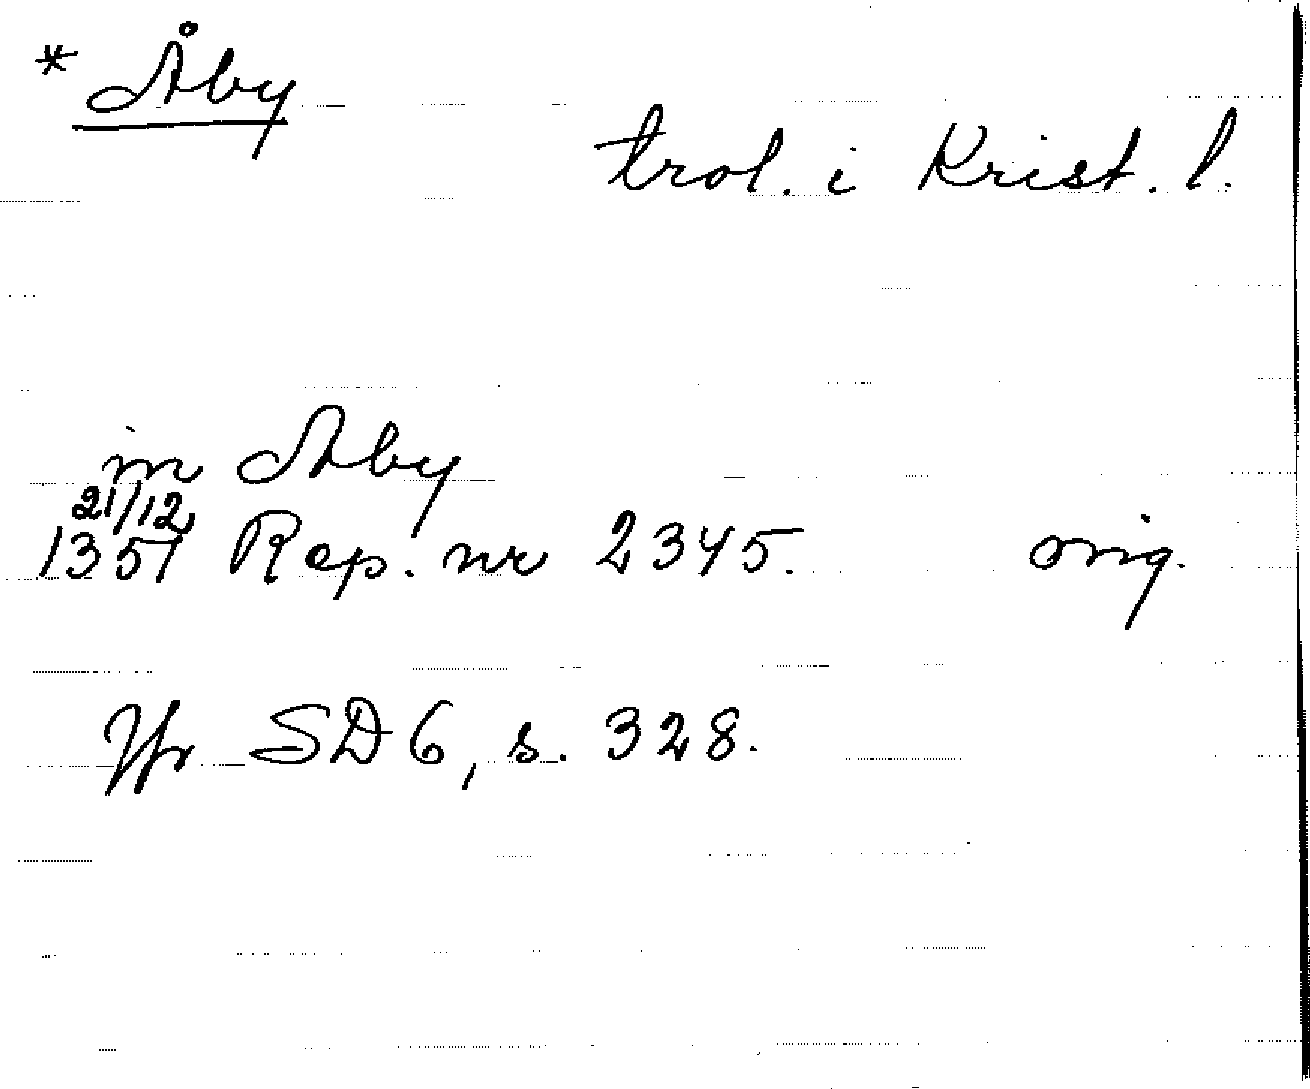 * Åby
trol. i Krist. l.
in Aby
21/12
1351 Rep. nr 2345. orig.
Jfr SD 6, s. 328.